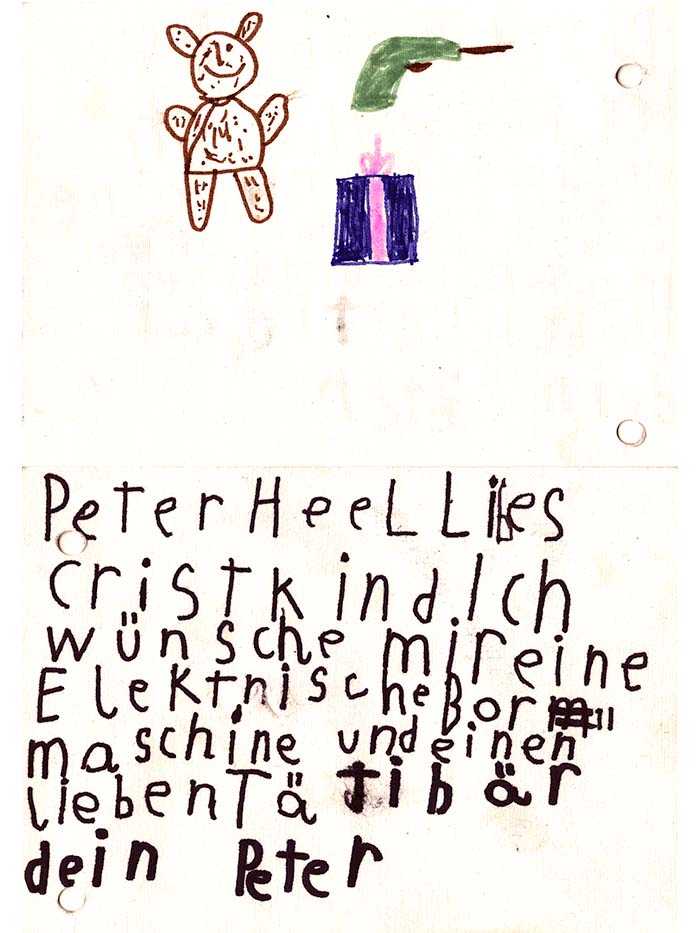 Peter Heel Libes
Cristkind Ich
wünsche mir eine
Elektnische Bor
maschine und einen
lieben Tä tibär
dein Peter